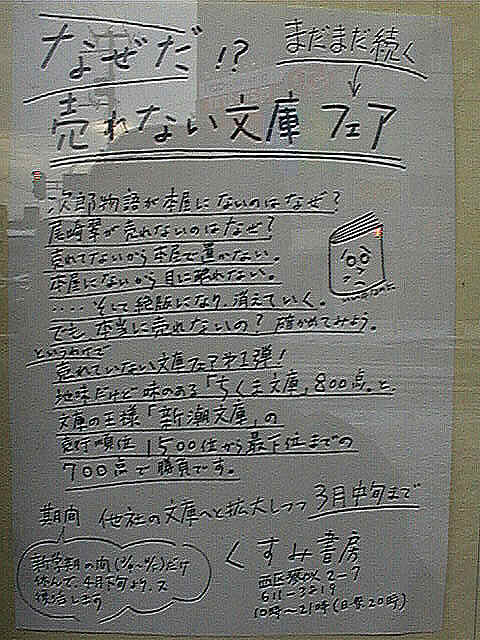 なぜだ!?
まだまだ続く
売れない文庫フェア
次郎物語が本屋にないのはなぜ?
尾崎翠が売れないのはなぜ?
売れてないから本屋で置かない。
本屋にないから目に触れない。
‥‥そして絶版になり、消えていく。
でも、本当に売れないの? 確かめてみよう。
というわけで
売れていない文庫フェア第1弾!
地味だけど味のある「ちくま文庫」800点。と、
文庫の王様「新潮文庫」の
売行順位 1500位から最下位までの
700点で勝負です。
期間 他社の文庫へと拡大しつつ 3月中旬まで
新学期の間だけ
休んで、4月下旬より、又
復活します
くすみ書房
西区琴似2-7
611-3819
10時〜21時(日祭20時)